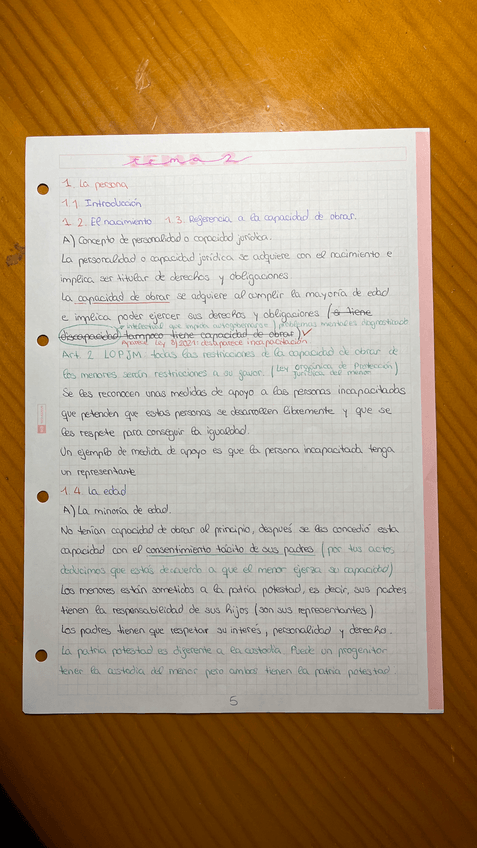 tema 2
1. La persona
1.1. Introducción
1.2. El nacimiento 1.3. Referencia a la capacidad de obrar.
A) Concepto de personalidad o capacidad jurídica.
La personalidad o capacidad jurídica se adquiere con el nacimiento e
implica ser titular de derechos y obligaciones
La capacidad de obrar se adquiere al cumplir la mayoría de edad
e implica poder ejercer sus derechos y obligaciones (si tiene
intelectual que impida autogobernarse) problemas mentales diagnosticado
discapacidad tampoco tiene capacidad de obrar)
Aparece Ley 8/2021: desaparece incapacitación
Art. 2 LOPJM: todas las restricciones de la capacidad de obrar de
los menores serán restricciones a su favor. (Ley orgánica de Protección
jurídica del menor)
Se les reconocen unas medidas de apoyo a las personas incapacitadas
que pretenden que estas personas se desarrollen libremente y que se
les respete para conseguir la igualdad.
Un ejemplo de medida de apoyo es que la persona incapacitada tenga
un representante
1.4. La edad
A) La minoría de edad.
No tenían capacidad de obrar al principio, después se les concedió esta
capacidad con el consentimiento tácito de sus padres. (por tus actos,
deducimos que estás de acuerdo a que el menor ejerza su capacidad)
Los menores están sometidos a la patria potestad, es decir, sus padres
tienen la responsabilidad de sus hijos (son sus representantes)
Los padres tienen que respetar su interés, personalidad y derecho.
La patria potestad es diferente a la custodia. Puede un progenitor
tener la custodia del menor pero ambos tienen la patria potestad.
5